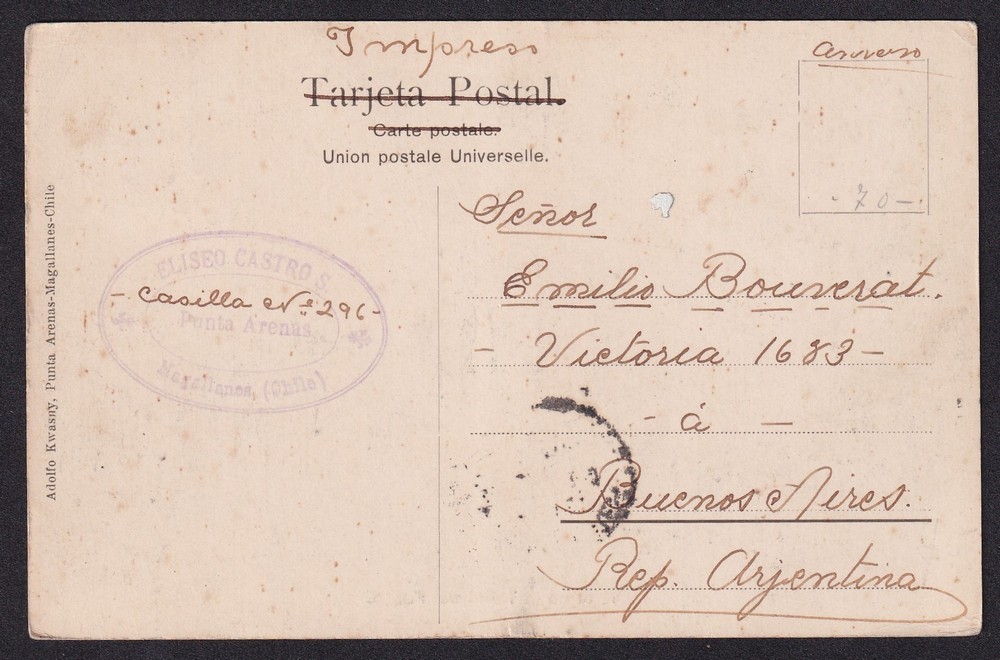 Impreso
anverso
Tarjeta Postal.
Carte postale.
Union postale Universelle.
70-
Adolfo Kwasny, Punta Arenas-Magallanes-Chile
ELISEO CASTRO S.
- Casilla Nº 296 -
Punta Arenas
Magallanes, (Chile)
Señor
Emilio Bouverat.
- Victoria 1683 -
- á -
Buenos Aires.
Rep. Arjentina